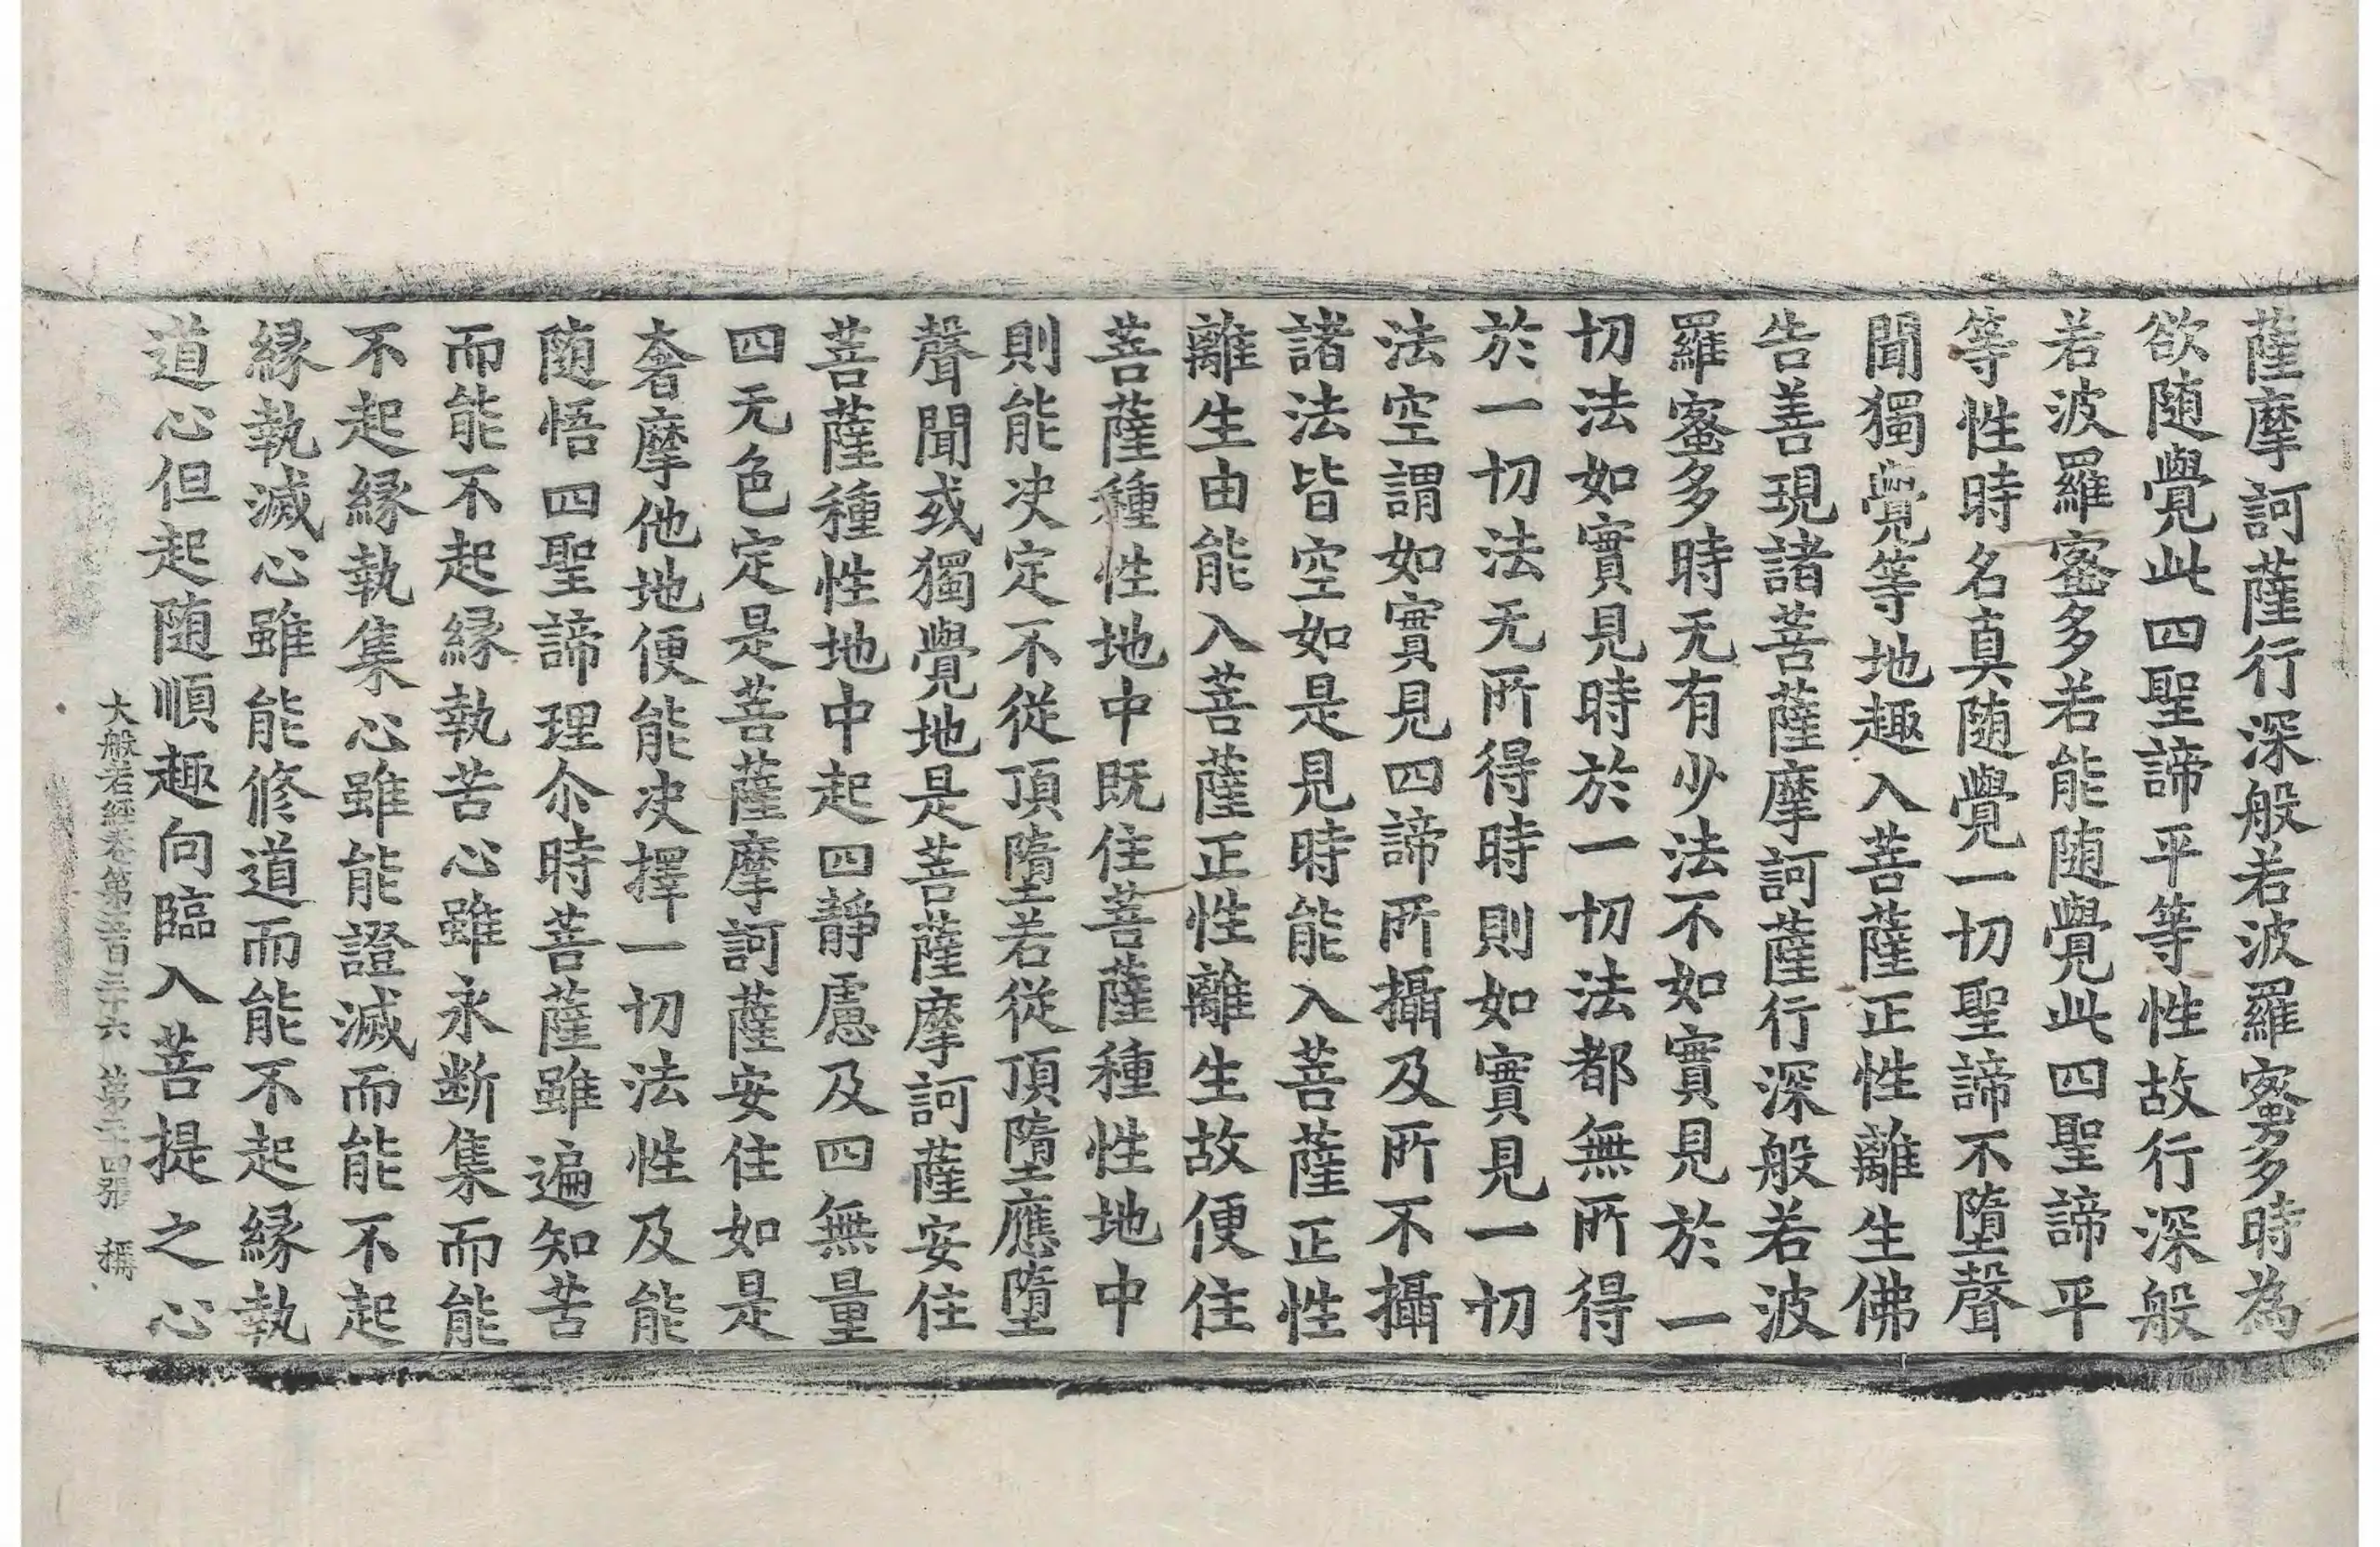 薩摩訶薩行深般若波羅蜜多時為
欲随覺此四聖諦平等性故行深般
若波羅蜜多若能随覺此四聖諦平
等性時名真随覺一切聖諦不墮聲
聞獨覺等地趣入菩薩正性離生佛
告善現諸菩薩摩訶薩行深般若波
羅蜜多時无有少法不如實見於一
切法如實見時於一切法都無所得
於一切法无所得時則如實見一切
法空謂如實見四諦所攝及所不攝
諸法皆空如是見時能入菩薩正性
離生由能入菩薩正性離生故便住
菩薩種性地中既住菩薩種性地中
則能决定不從頂墮若從頂墮應墮
聲聞或獨覺地是菩薩摩訶薩安住
菩薩種性地中起四靜慮及四無量
四无色定是菩薩摩訶薩安住如是
奢摩他地便能决擇一切法性及能
随悟四聖諦理尒時菩薩雖遍知苦
而能不起緣執苦心雖永断集而能
不起緣執集心雖能證滅而能不起
緣執滅心雖能修道而能不起緣執
道心但起随順趣向臨入菩提之心
大般若經卷第五百三十六 第二十四張 稱